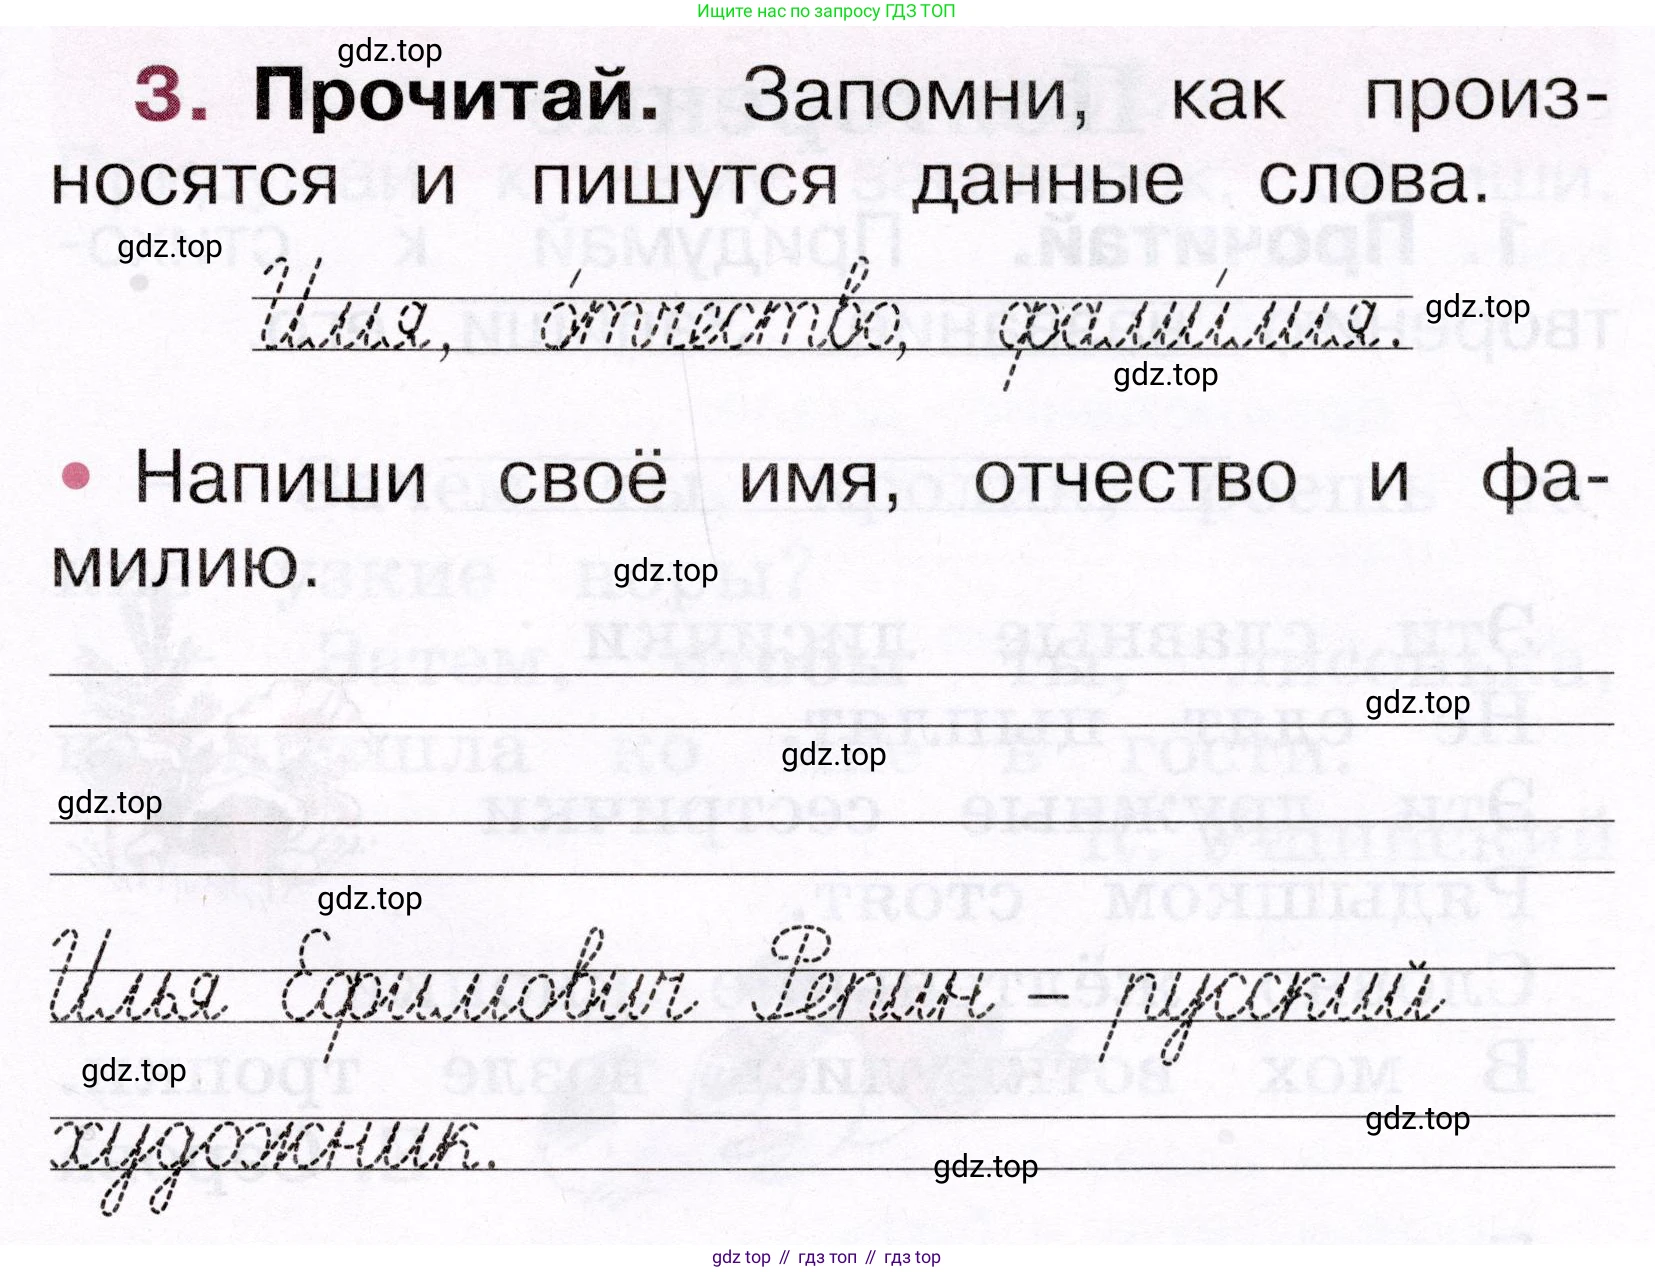 Ищите нас по запросу ГДЗ ТОП
gdz.top
3. Прочитай. Запомни, как произ-
носятся и пишутся данные слова.
gdz.top
И́мя, о́тчество, фами́лия.
gdz.top
gdz.top
• Напиши своё имя, отчество и фа-
милию.
gdz.top
gdz.top
gdz.top
gdz.top
gdz.top
Илья Ефимович Репин – русский
gdz.top
gdz.top
художник.
gdz.top
gdz top // гдз топ // гдз top